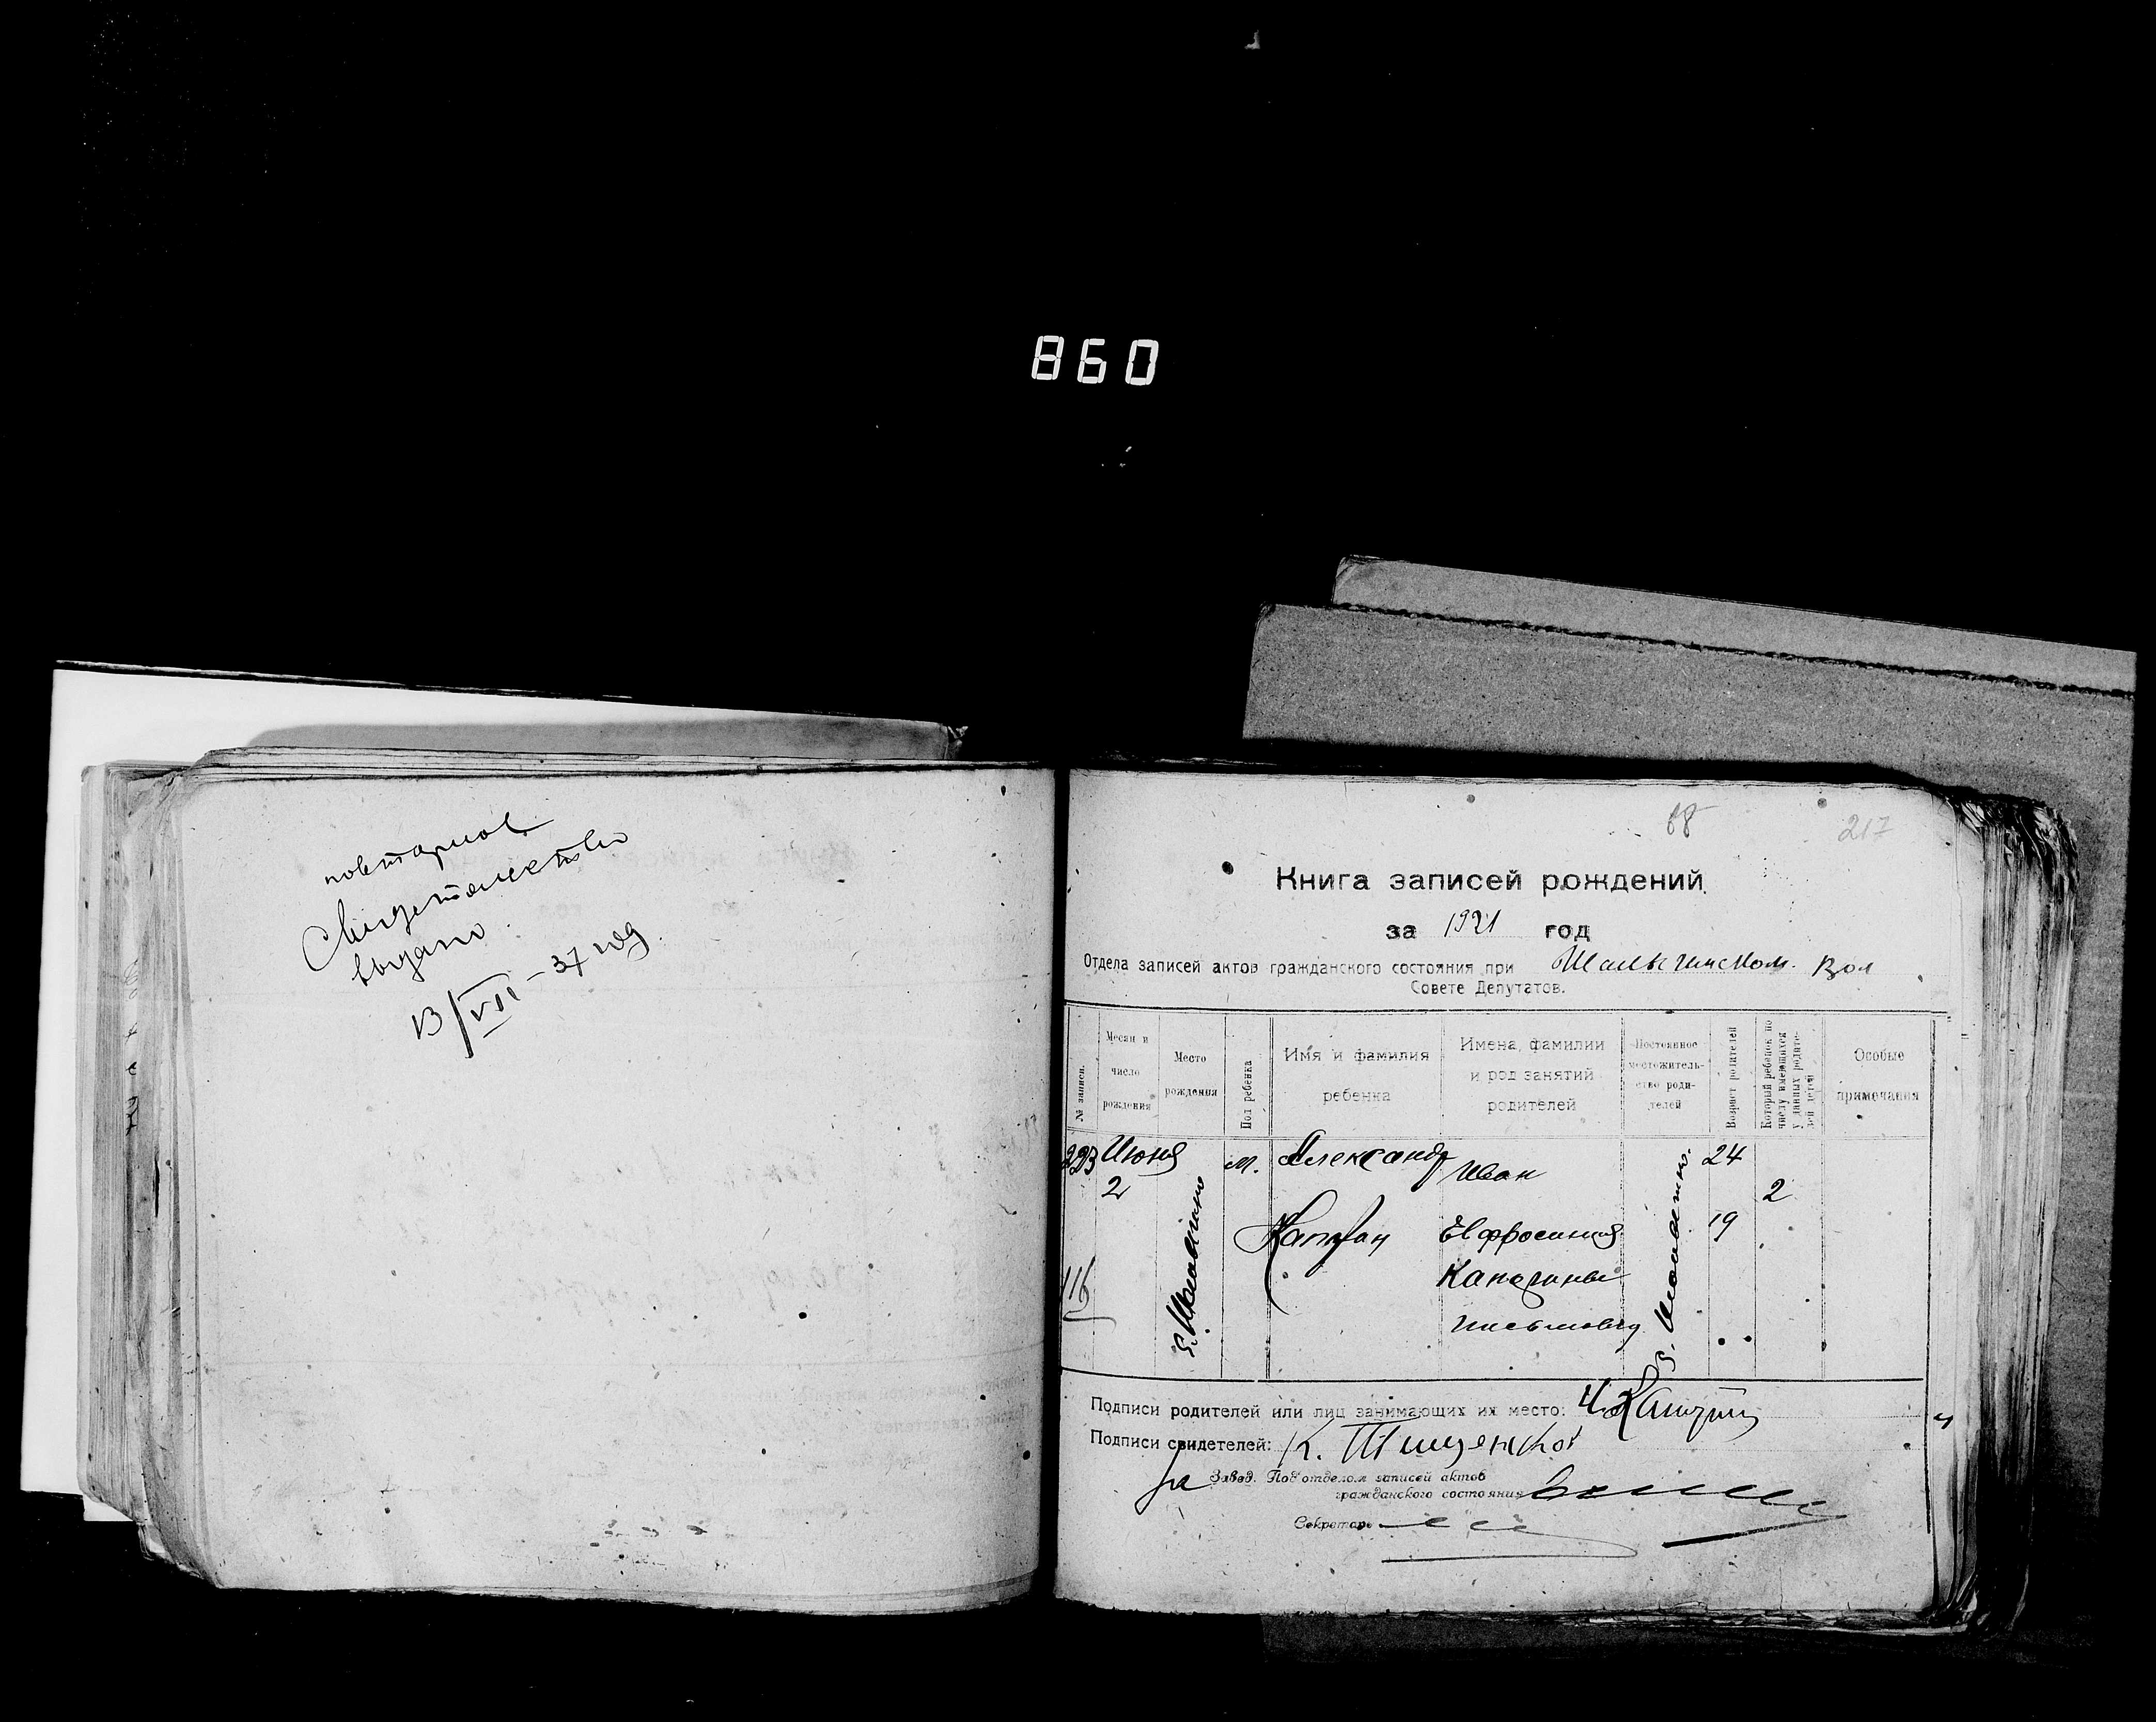 860
повторное
свидетельство
выдано
13/VII – 37 год.
68
217
Книга записей рождений
за 1921 год
Отдела записей актов гражданского состояния при Шалыгинском Вол
Совете Депутатов.
№ записи.
Месяц и число рождения
Место рождения
Пол ребенка
Имя и фамилия ребенка
Имена, фамилии и род занятий родителей
Постоянное местожительство родителей
Возраст родителей
Который ребенок по числу имеющихся у данных родителей детей
Особые примечания
223 Июня м. Александр Иван 24
2 2
Евфросиния 19
116
Подписи родителей или лиц занимающих их место:
Подписи свидетелей: К. Тищенко
За Завед. Под'отделом записей актов
гражданского состояния
Секретарь